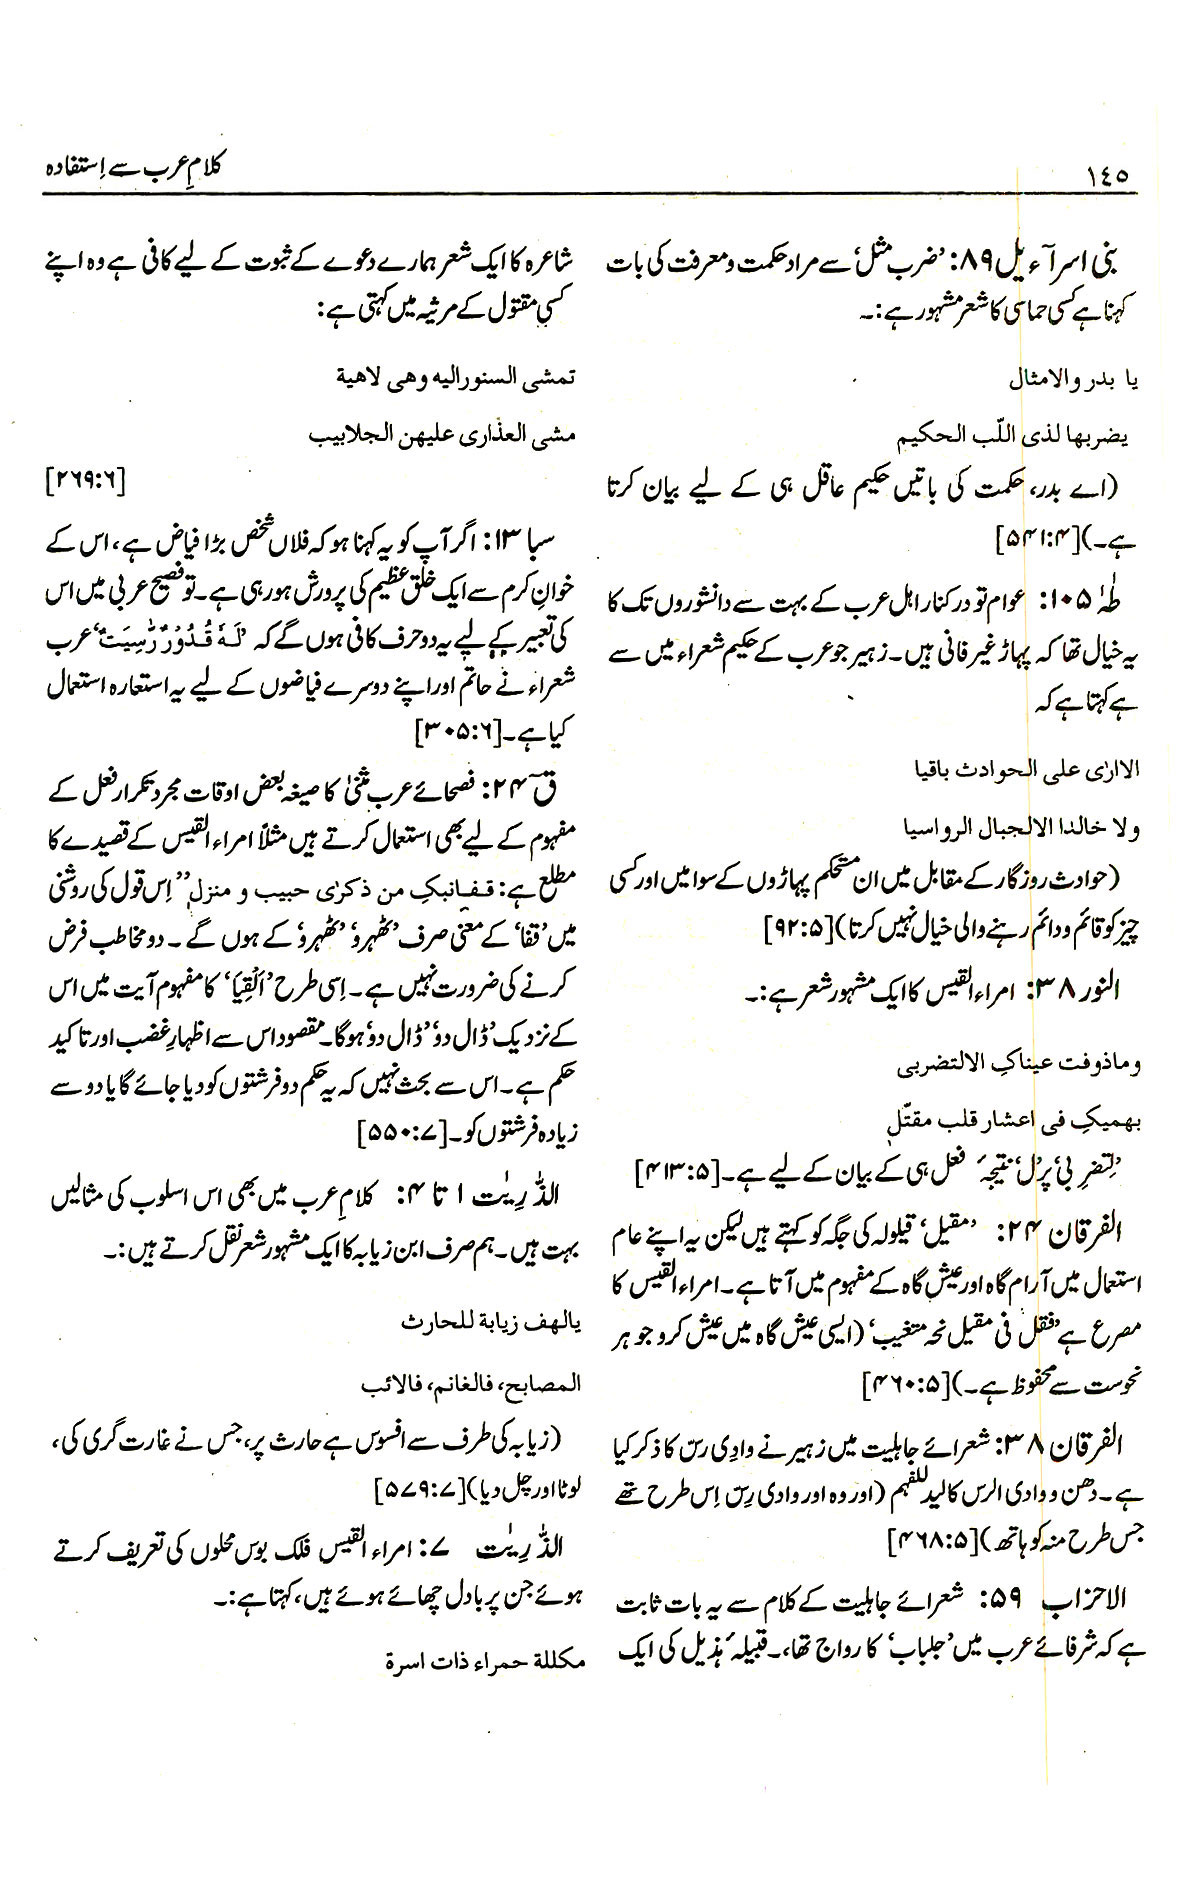 ۱٤٥
کلامِ عرب سے اِستفادہ
بنی اسرآءیل ۸۹: ’ضرب مثل‘ سے مراد حکمت و معرفت کی بات
کہنا ہے کسی حماسی کا شعر مشہور ہے:۔
یا بدر والامثال
یضربها لذی اللّب الحکیم
(اے بدر، حکمت کی باتیں حکیم عاقل ہی کے لیے بیان کرتا
ہے۔)[۵۴۱:۴]
طٰهٰ ۱۰۵: عوام تو درکنار اہل عرب کے بہت سے دانشوروں تک کا
یہ خیال تھا کہ پہاڑ غیر فانی ہیں۔ زہیر جو عرب کے حکیم شعراء میں سے
ہے کہتا ہے کہ
الااریٰ علی الحوادث باقیا
ولا خالدا الالجبال الرواسیا
(حوادث روزگار کے مقابل میں ان مستحکم پہاڑوں کے سوا میں اور کسی
چیز کو قائم و دائم رہنے والی خیال نہیں کرتا)[۹۲:۵]
النور ۳۸: امراء القیس کا ایک مشہور شعر ہے:۔
وماذوفت عیناکِ الالتضربی
بهمیکِ فی اعشار قلب مقتّلٖ
’لِتضرِبی‘ پر’ل‘ نتیجہ ٔ فعل ہی کے بیان کے لیے ہے۔[۴۱۳:۵]
الفرقان ۲۴: ’مقیل‘ قیلولہ کی جگہ کو کہتے ہیں لیکن یہ اپنے عام
استعمال میں آرام گاہ اور عیش گاہ کے مفہوم میں آتا ہے۔ امراء القیس کا
مصرع ہے ’فقل فی مقیل نحہ متغیب‘ (ایسی عیش گاہ میں عیش کرو جو ہر
نحوست سے محفوظ ہے۔)[۴۶۰:۵]
الفرقان ۳۸: شعرائے جاہلیت میں زہیر نے وادِی رسّ کا ذکر کیا
ہے۔ دھن و وادی الرس کالید للفهم (اور وہ اور وادی رِس اِس طرح تھے
جس طرح منہ کو ہاتھ)[۴۶۸:۵]
الاحزاب ۵۹: شعرائے جاہلیت کے کلام سے یہ بات ثابت
ہے کہ شرفائے عرب میں ’جلباب‘ کا رواج تھا،۔ قبیلۂ ہذیل کی ایک
شاعرہ کا ایک شعر ہمارے دعوے کے ثبوت کے لیے کافی ہے وہ اپنے
کسی مقتول کے مرثیہ میں کہتی ہے:
تمشی النسورالیه وهی لاهیة
مشی العذاری علیهن الجلابیب
[۲۶۹:۶]
سبا ۱۳: اگر آپ کو یہ کہنا ہو کہ فلاں شخص بڑا فیاض ہے، اس کے
خوانِ کرم سے ایک خلقِ عظیم کی پرورش ہو رہی ہے۔ تو فصیح عربی میں اس
کی تعبیر کے لیے یہ دو حرف کافی ہوں گے کہ ’لَهٗ قُدُوْرٌ رّٰسِیٰت‘ عرب
شعراء نے حاتم اور اپنے دوسرے فیاضوں کے لیے یہ استعارہ استعمال
کیا ہے۔[۳۰۵:۶]
قٓ ۲۴: فصحائے عرب مثنیٰ کا صیغہ بعض اوقات مجرد تکرار فعل کے
مفہوم کے لیے بھی استعمال کرتے ہیں مثلاً امراء القیس کے قصیدے کا
مطلع ہے: قفانبکِ من ذکریٰ حبیب و منزلٖ” اِس قول کی روشنی
میں ’قفا‘ کے معنی صرف ’ٹھہرو‘ ’ٹھہرو‘ کے ہوں گے۔ دو مخاطب فرض
کرنے کی ضرورت نہیں ہے۔ اِسی طرح ’اَلْقِیَا‘ کا مفہوم آیت میں اس
کے نزدیک ’ڈال دو‘ ’ڈال دو‘ ہوگا۔ مقصود اس سے اظہارِ غضب اور تاکید
حکم ہے۔ اس سے بحث نہیں کہ یہ حکم دو فرشتوں کو دیا جائے گا یا دو سے
زیادہ فرشتوں کو۔[۵۵۰:۷]
الذّٰرِیٰت ۱ تا ۴: کلامِ عرب میں بھی اس اسلوب کی مثالیں
بہت ہیں۔ ہم صرف ابن زیابہ کا ایک مشہور شعر نقل کرتے ہیں:۔
یالهف زیابة للحارث
المصابح، فالغانم، فالائب
(زیابہ کی طرف سے افسوس ہے حارث پر، جس نے غارت گری کی،
لوٹا اور چل دیا)[۵۷۹:۷]
الذّٰرِیٰت ۷: امراء القیس فلک بوس محلوں کی تعریف کرتے
ہوئے جن پر بادل چھائے ہوئے ہیں، کہتا ہے:۔
مکللة حمراء ذات اسرة